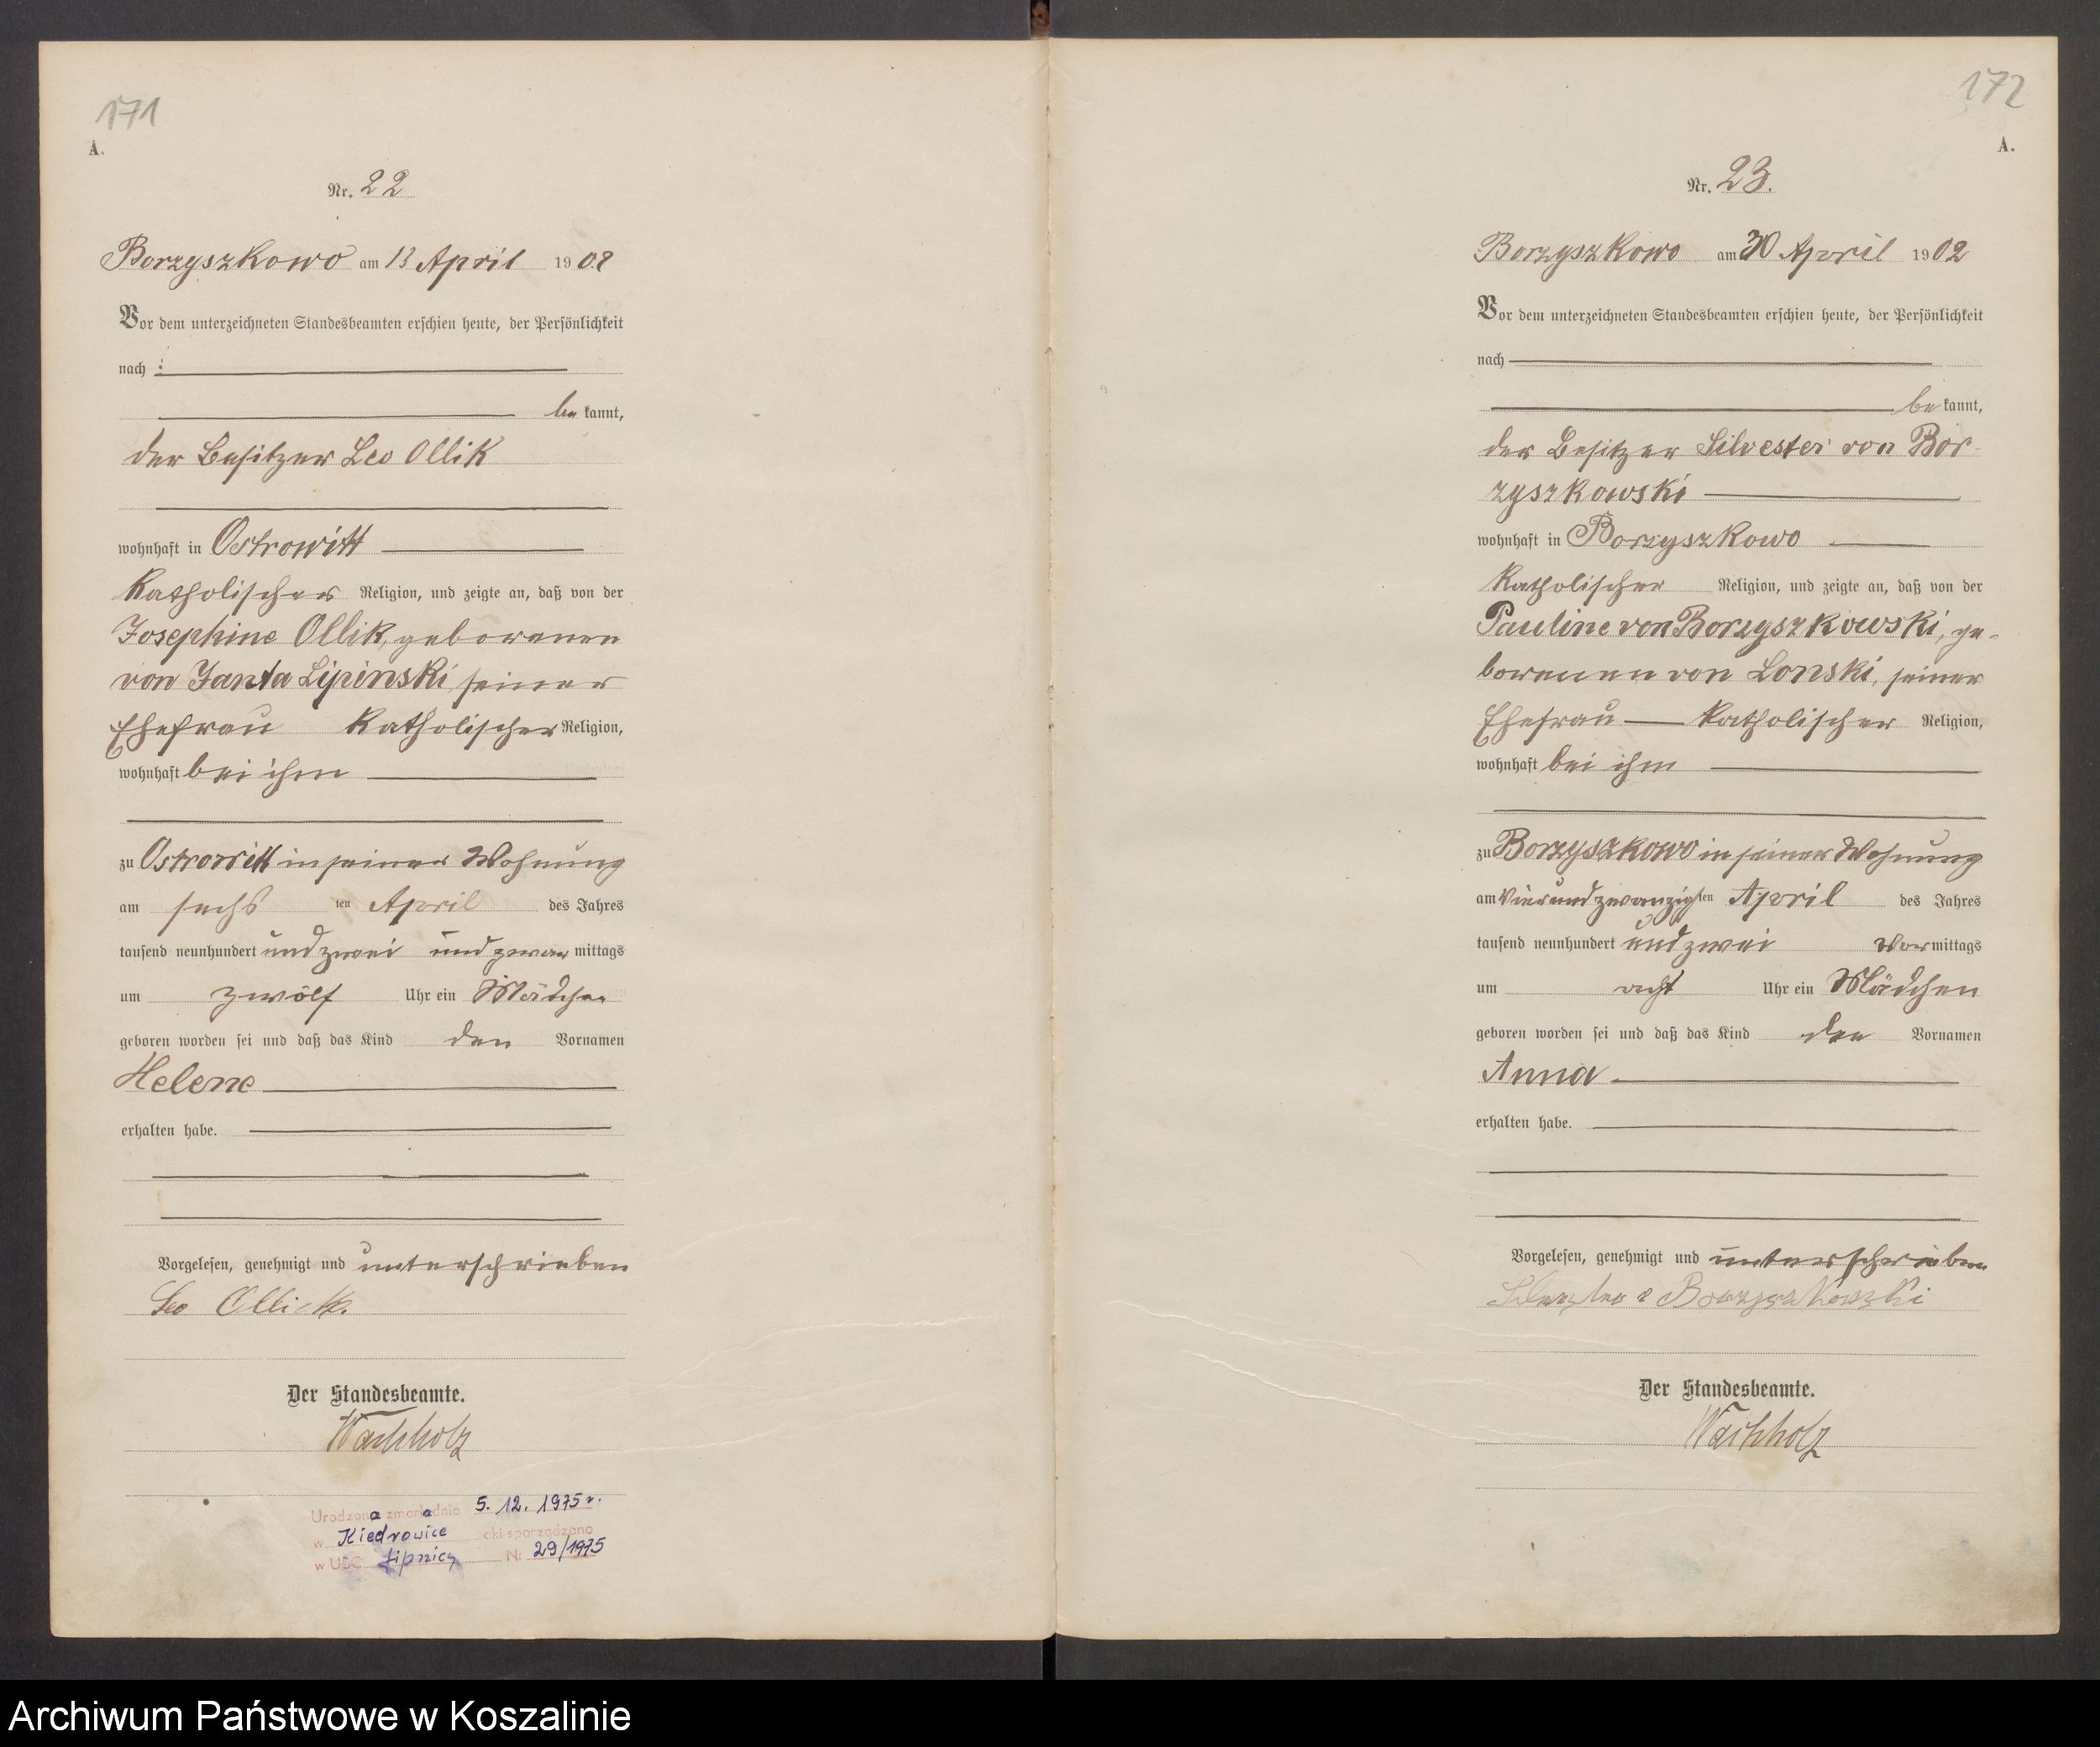 171
A.
Nr. 22
Borzyszkowo am 13 April 1902
Vor dem unterzeichneten Standesbeamten erschien heute, der Persönlichkeit
nach
be kannt,
der Besitzer Leo Ollik
wohnhaft in Ostrowitt
katholischer Religion, und zeigte an, daß von der
Josephine Ollik, geborenen
von Janta Lipinski seiner
Ehefrau katholischer Religion,
wohnhaft bei ihm
zu Ostrowitt in seiner Wohnung
am sechs ten April des Jahres
tausend neunhundert und zwei und zwar mittags
um zwölf Uhr ein Mädchen
geboren worden sei und daß das Kind den Vornamen
Helene
erhalten habe.
Vorgelesen, genehmigt und unterschrieben
Leo Ollik.
Der Standesbeamte.
Wachholz
Urodzona zmarła dnia 5. 12. 1975 r.
w Kiedrowice sporządzono
w USC Lipnicy Nr 29/1975
172
A.
Nr. 23.
Borzyszkowo am 30 April 1902
Vor dem unterzeichneten Standesbeamten erschien heute, der Persönlichkeit
nach
be kannt,
der Besitzer Silvester von Bor-
zyszkowski
wohnhaft in Borzyszkowo
katholischer Religion, und zeigte an, daß von der
Pauline von Borzyszkowski, ge-
borenen von Lonski, seiner
Ehefrau katholischer Religion,
wohnhaft bei ihm
zu Borzyszkowo in seiner Wohnung
am vierundzwanzigsten April des Jahres
tausend neunhundert und zwei Vormittags
um acht Uhr ein Mädchen
geboren worden sei und daß das Kind den Vornamen
Anna
erhalten habe.
Vorgelesen, genehmigt und unterschrieben
Borzyszkowski
Der Standesbeamte.
Wachholz
Archiwum Państwowe w Koszalinie